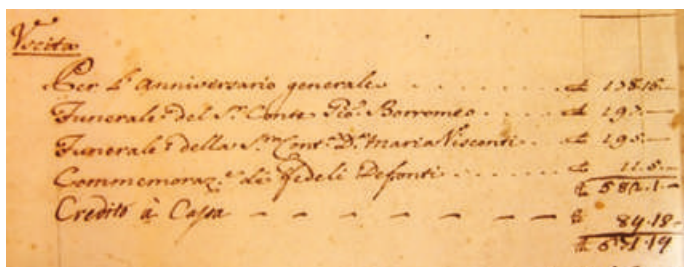 Vscita
Per L'Anniversario generale . . . . . . . £ 178.16.—
Funerale del S.r Conte Gio. Borromeo . . . . £ 197.—
Funerale della S.ra Cont.a D.a Maria Visconti . . £ 195.—
Commemoraz.e di fedeli Defonti . . . . . . £ 11.5.—
£ 582.1—
Credito à Cassa — — — — — — — £ 89.18—
£ 671.19